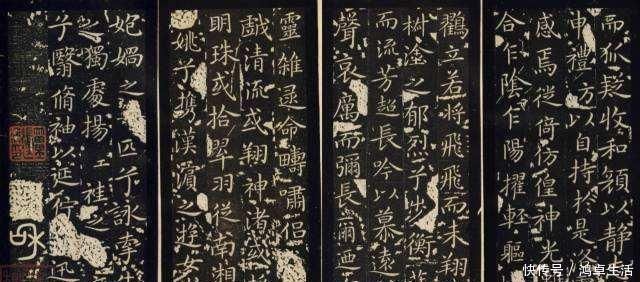 而狐疑收和顏以静
申禮防以自持於是洛
感焉徙倚仿偟神光
合乍陰乍陽擢輕軀
鸛立若將飛飛而未翔
椒塗之郁烈兮步衡薄
而流芳超長吟以慕遠
聲哀厲而彌長爾迺
靈雜遝命疇嘯侶
戲清流或翔神渚或
明珠或拾翠羽從南湘
姚兮攜漢濱之遊女
妃媧之匹兮詠牽
之獨處揚輕袿之
兮翳脩袖以延佇迅
快传号/鸿卓生活